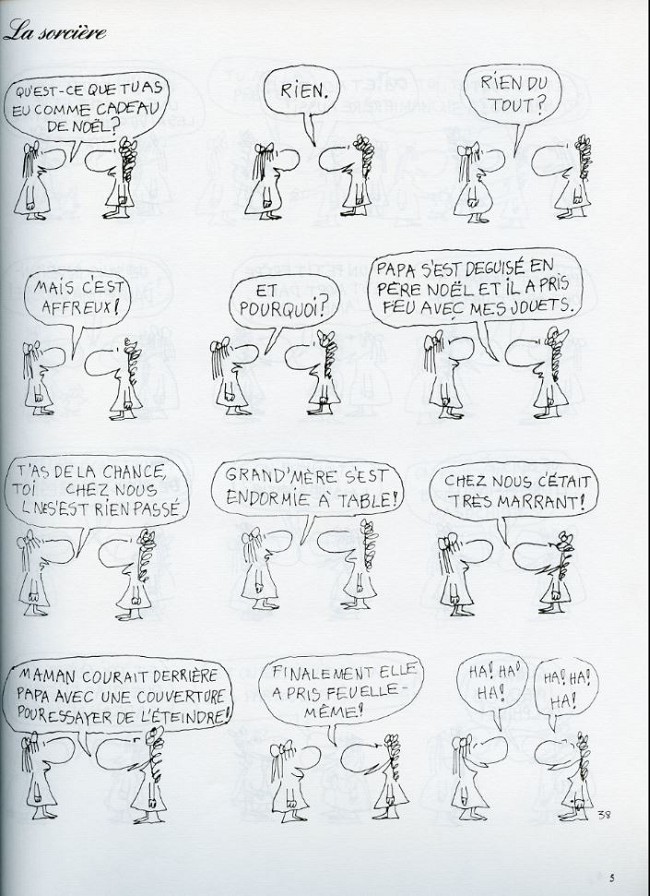 La sorcière
QU'EST-CE QUE TU AS
EU COMME CADEAU
DE NOËL?
RIEN.
RIEN DU
TOUT?
MAIS C'EST
AFFREUX!
ET
POURQUOI?
PAPA S'EST DEGUISÉ EN
PERE NOËL ET IL A PRIS
FEU AVEC MES JOUETS.
T'AS DE LA CHANCE,
TOI CHEZ NOUS
S'EST RIEN PASSÉ
GRAND'MÈRE S'EST
ENDORMIE À TABLE!
CHEZ NOUS C'ÉTAIT
TRÈS MARRANT!
MAMAN COURAIT DERRIÈRE
PAPA AVEC UNE COUVERTURE
POUR ESSAYER DE L'ÉTEINDRE!
FINALEMENT ELLE
A PRIS FEU ELLE-
MÊME!
HA! HA!
HA!
HA! HA!
HA!
38
5